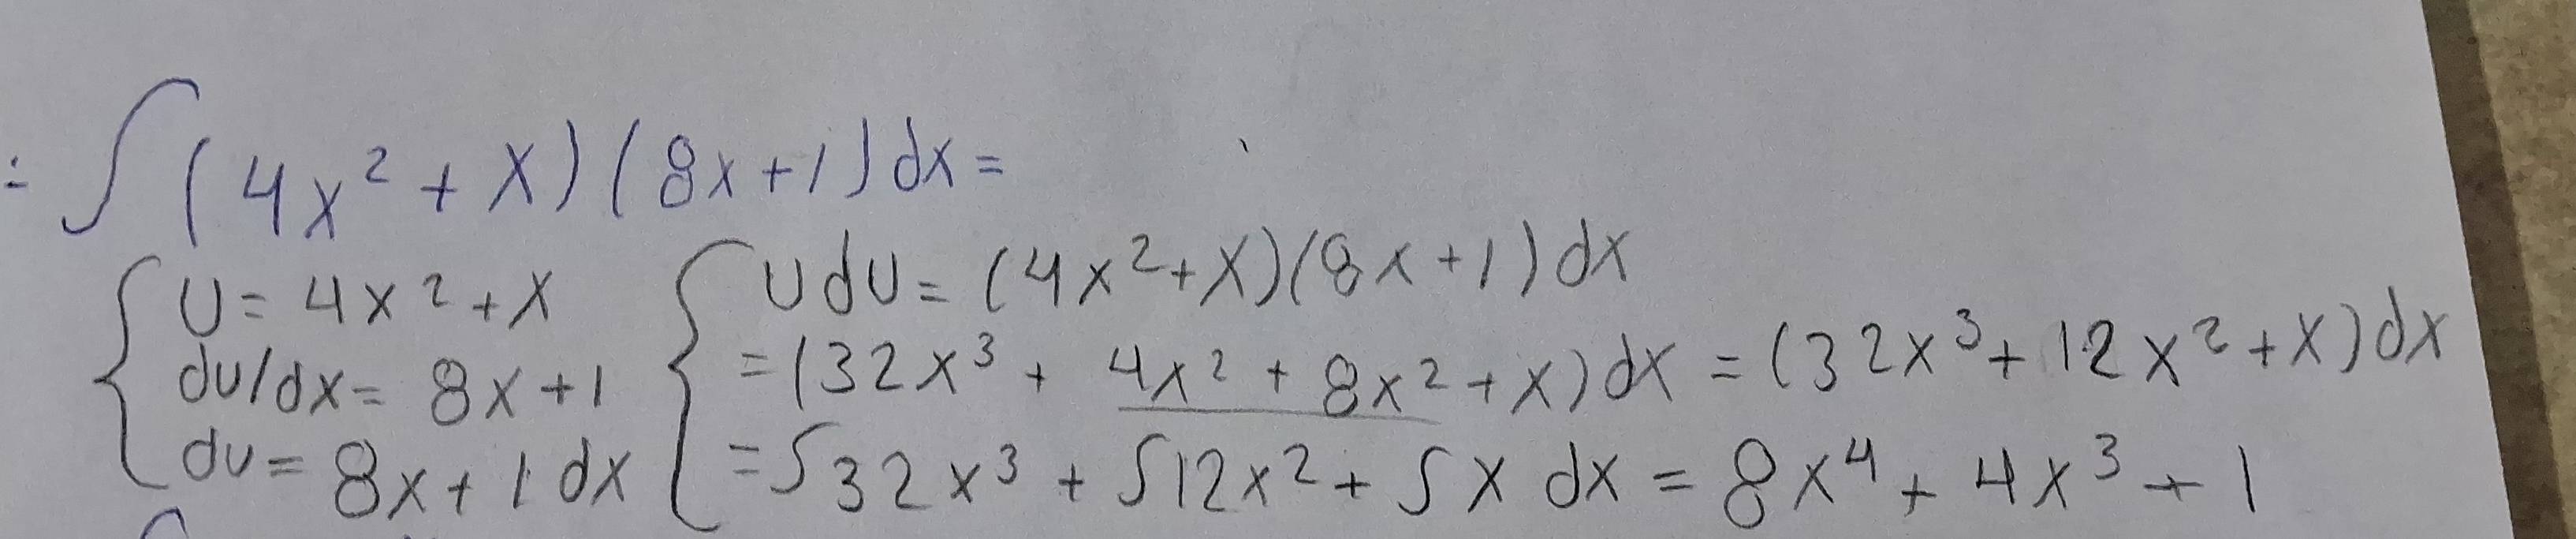 ∫(4x²+x)(8x+1)dx=
{ U=4x²+x
du/dx=8x+1
du=8x+1dx
{ UdU=(4x²+x)(8x+1)dx
=(32x³+4x²+8x²+x)dx=(32x³+12x²+x)dx
=∫32x³+∫12x²+∫x dx=8x⁴+4x³+1